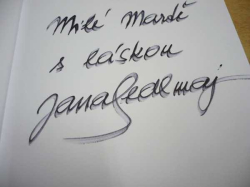 Milé Marti
s láskou
Jana Sedlmaj